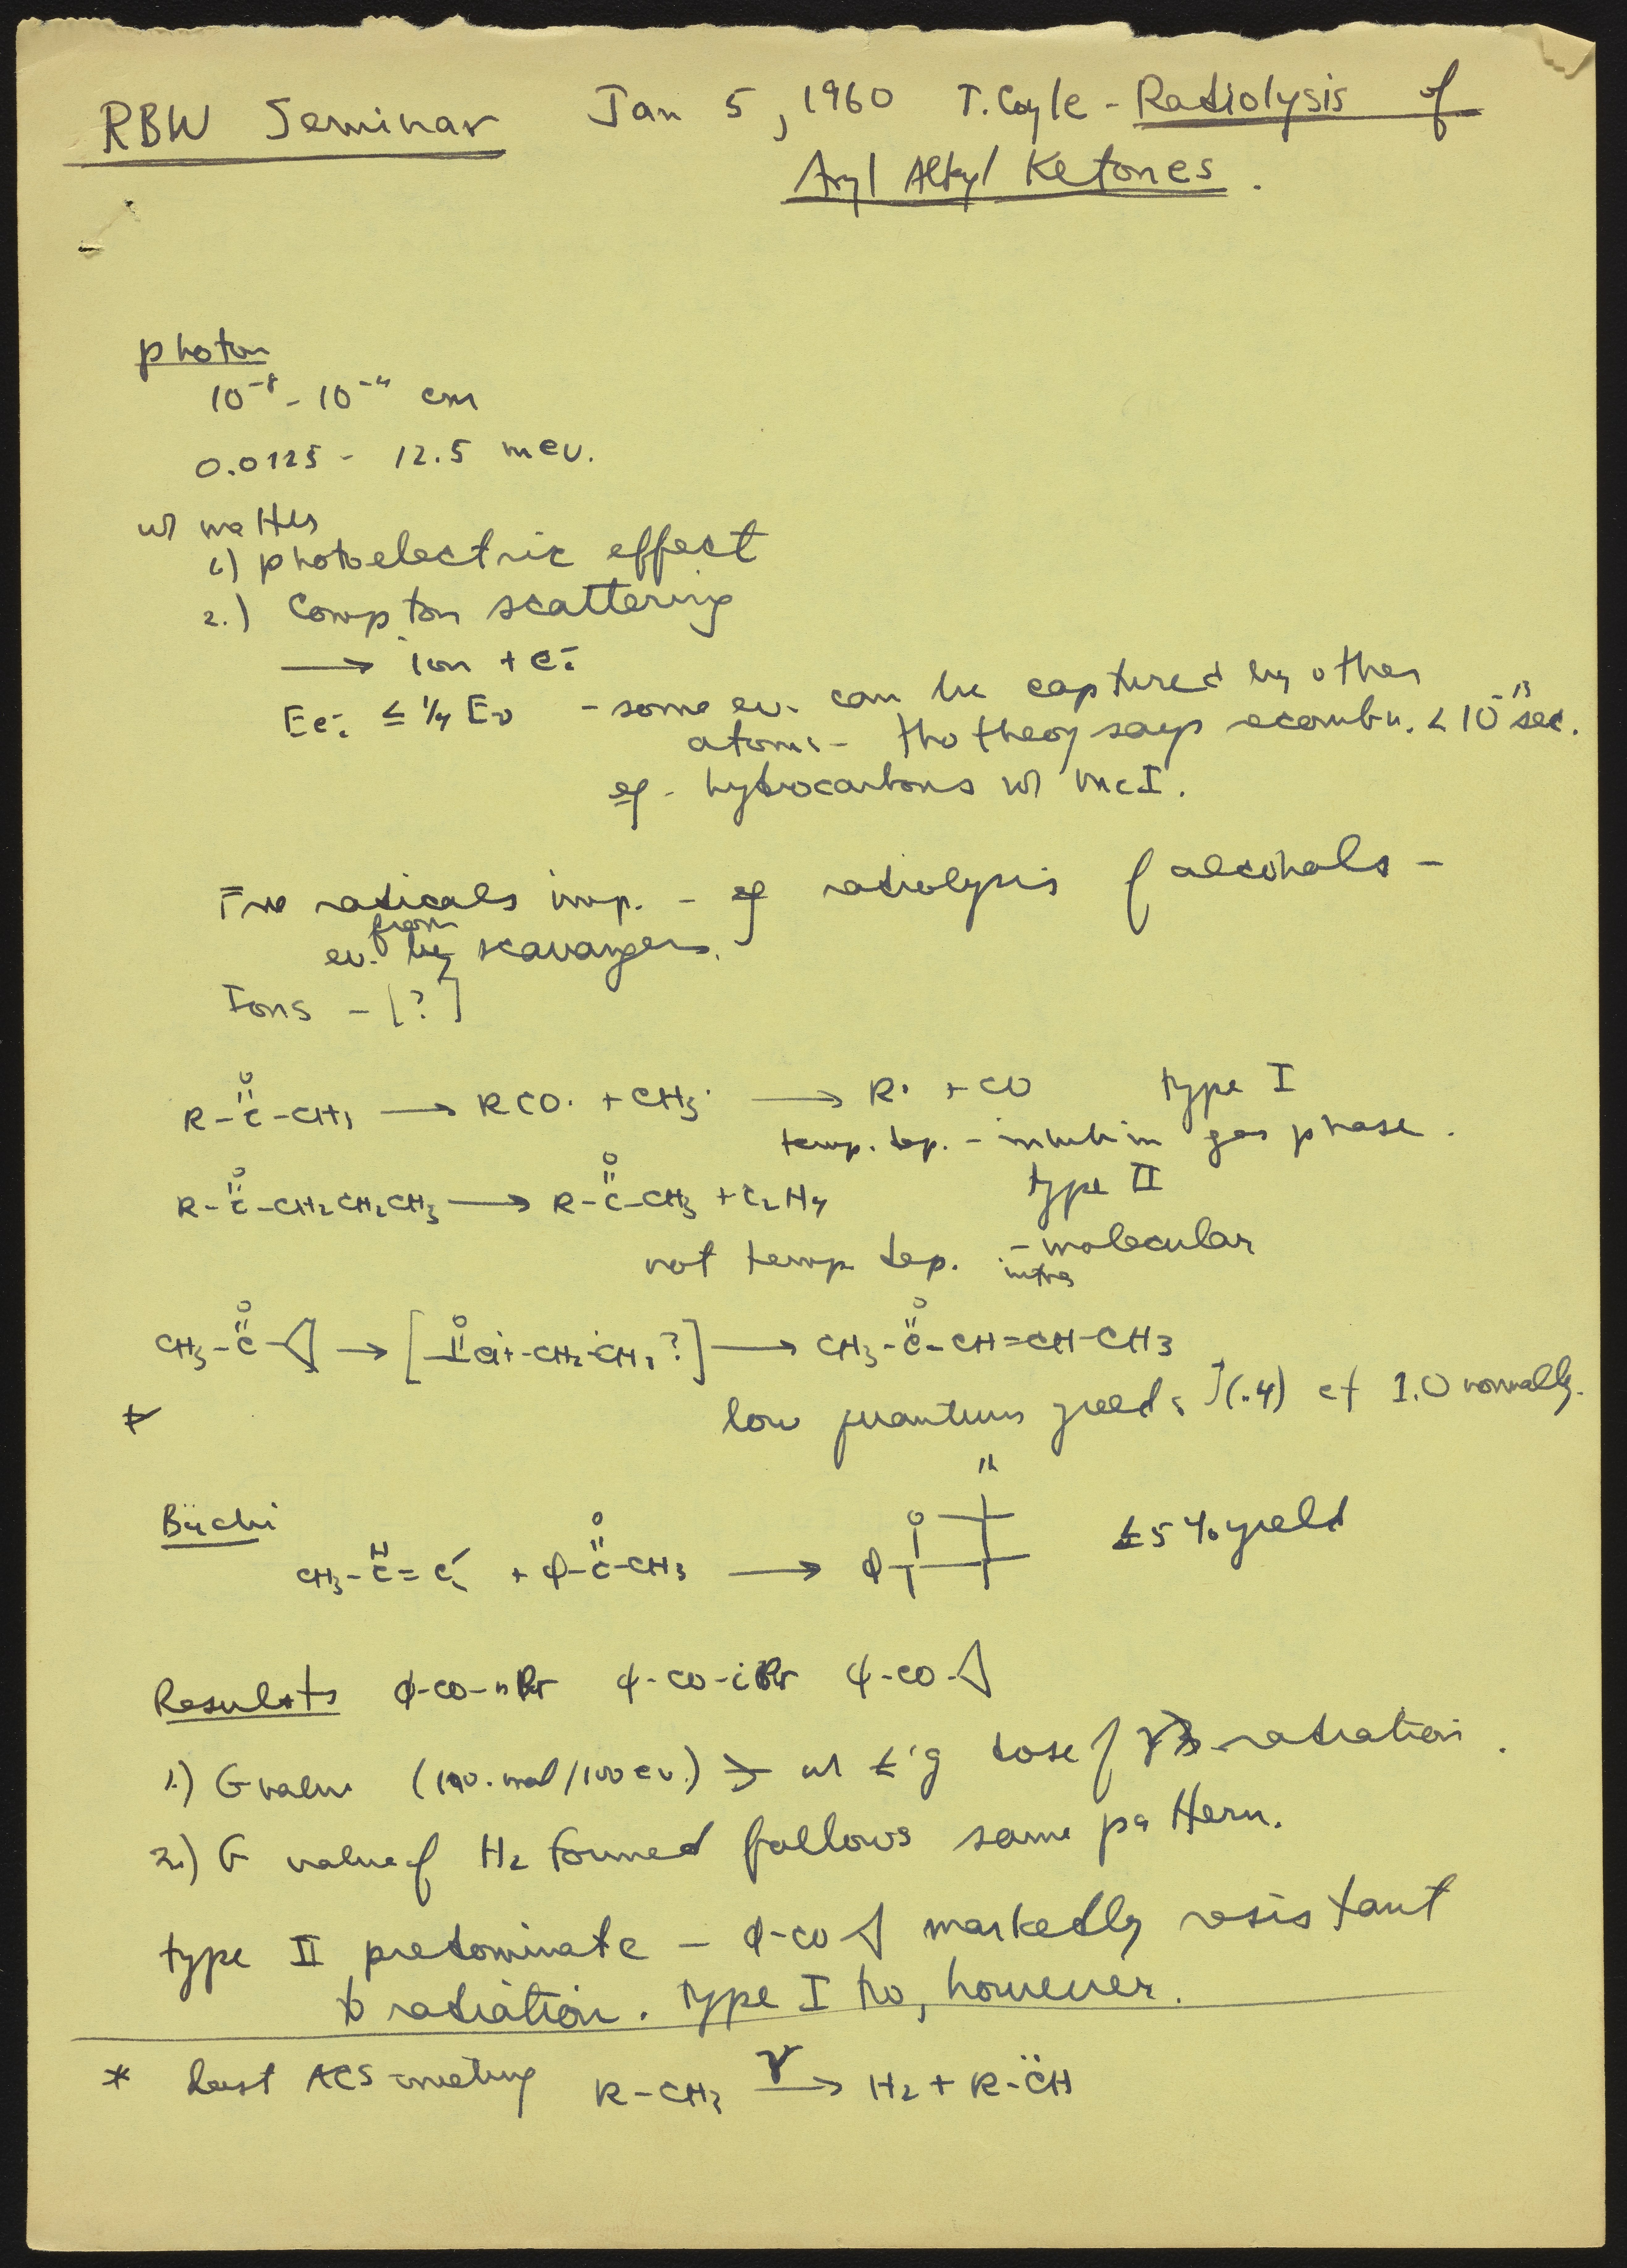 RBW Seminar Jan 5, 1960 T. Coyle - Radiolysis of
Aryl Alkyl Ketones.
photon
10⁻⁸ - 10⁻⁴ cm
0.0125 - 12.5 mev.
w/ matter
1.) photoelectric effect
2.) Compton scattering
→ ion + e⁻
≤ ¼ - some ev. can be captured by other
atoms - tho theory says recombn. < 10⁻¹³ sec.
eg - hydrocarbons w/ I.
Free radicals imp. - eg radiolysis of alcohols -
from
ev. by scavangers.
Ions - [?]
O
R-C-CH₃ → RCO· + CH₃· → R· + CO type I
temp. dep. - in gas phase.
O O type II
R-C-CH₂CH₂CH₃ → R-C-CH₃ + C₂H₄
not temp. dep. - molecular
intra
O O O
CH₃-C-◁ → [ ĊH-CH₂-ĊH₂ ?] → CH₃-C-CH=CH-CH₃
* low quantum yields (.4) cf 1.0 normally.
Büchi
H O
CH₃-C=C + φ-C-CH₃ → φ O H ≤5% yield
Results φ-CO-nPr φ-CO-iPr φ-CO-◁
1.) G value (no. mol/100 ev.) w/ dose of γ radiation.
2.) G value of H₂ formed follows same pattern.
type II predominate - φ-CO-◁ markedly resistant
to radiation. type I too, however.
* Last ACS meeting R-CH₃ →γ H₂ + R-C̈H